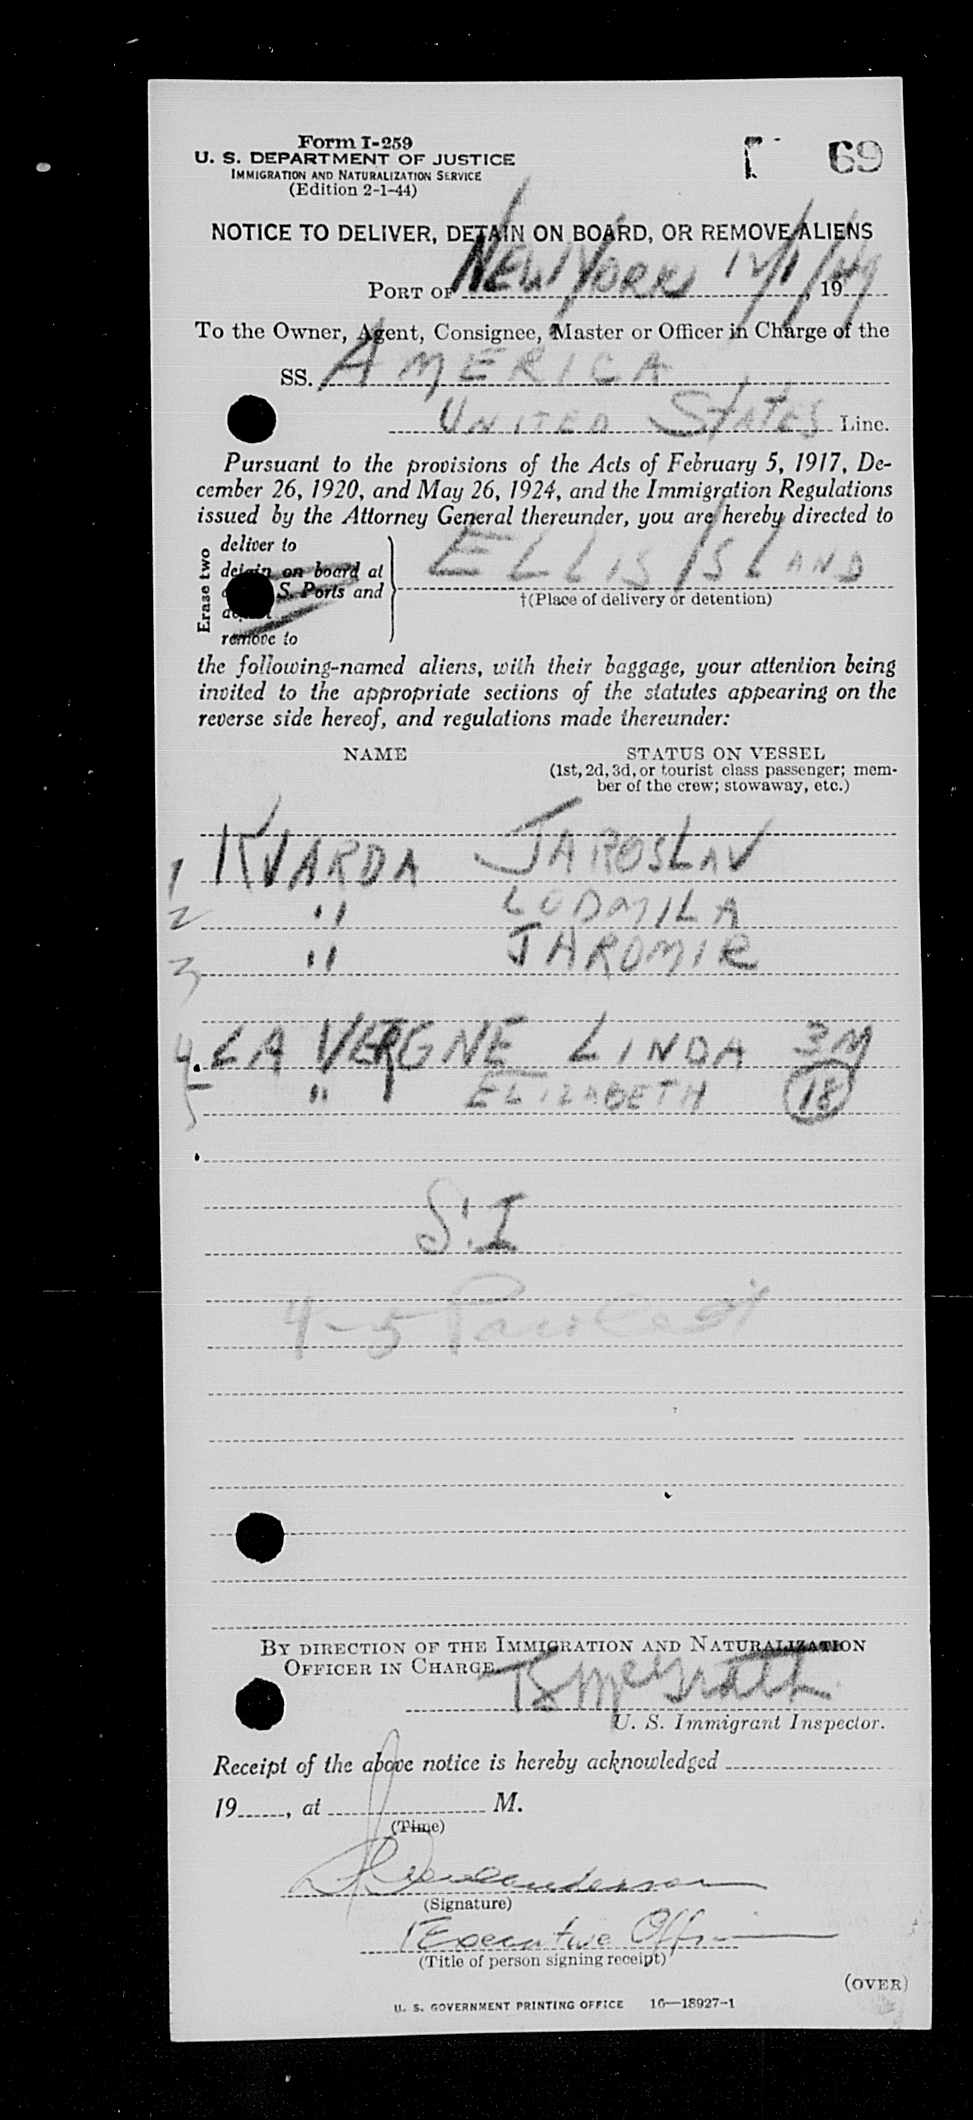 Form I-259
U. S. DEPARTMENT OF JUSTICE
IMMIGRATION AND NATURALIZATION SERVICE
(Edition 2-1-44)
69
NOTICE TO DELIVER, DETAIN ON BOARD, OR REMOVE ALIENS
PORT OF NEW YORK 12/1/49, 19
To the Owner, Agent, Consignee, Master or Officer in Charge of the
SS. AMERICA
UNITED STATES Line.
Pursuant to the provisions of the Acts of February 5, 1917, De-
cember 26, 1920, and May 26, 1924, and the Immigration Regulations
issued by the Attorney General thereunder, you are hereby directed to
Erase two
deliver to
detain on board at
S. Ports and
remove to
ELLIS ISLAND
†(Place of delivery or detention)
the following-named aliens, with their baggage, your attention being
invited to the appropriate sections of the statutes appearing on the
reverse side hereof, and regulations made thereunder:
NAME STATUS ON VESSEL
(1st, 2d, 3d, or tourist class passenger; mem-
ber of the crew; stowaway, etc.)
1 KVARDA JAROSLAV
2 " LUDMILA
3 " JAROMIR
4. LA VERGNE LINDA 3M
5 " ELIZABETH 18
S.I
4-5
BY DIRECTION OF THE IMMIGRATION AND NATURALIZATION
OFFICER IN CHARGE.
McGrath
U. S. Immigrant Inspector.
Receipt of the above notice is hereby acknowledged
19, at M.
(Time)
(Signature)
Executive Officer
(Title of person signing receipt)
(OVER)
U. S. GOVERNMENT PRINTING OFFICE 16—18927-1